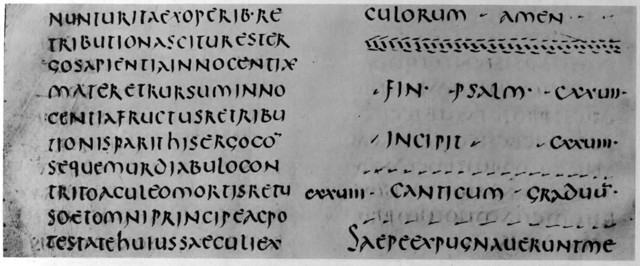 NUNTURITAEXOPERIB·RE
TRIBUTIONASCITURESTER
GOSAPIENTIAINNOCENTIAE
MATERETRURSUMINNO
CENTIAFRUCTUSRETRIBU
TIONISPARITHISERGOCO‾
SEQUEMURDIABULOCON
TRITOACULEOMORTISRETU
SOETOMNIPRINCIPEACPO
TESTATEHUIUSSAECULIEX
CULORUM AMEN
FIN· PSALM· CXXUII·
INCIPIT CXXUIII·
CXXUIII· CANTICUM GRADUU·
SAEPEEXPUGNAUERUNTME